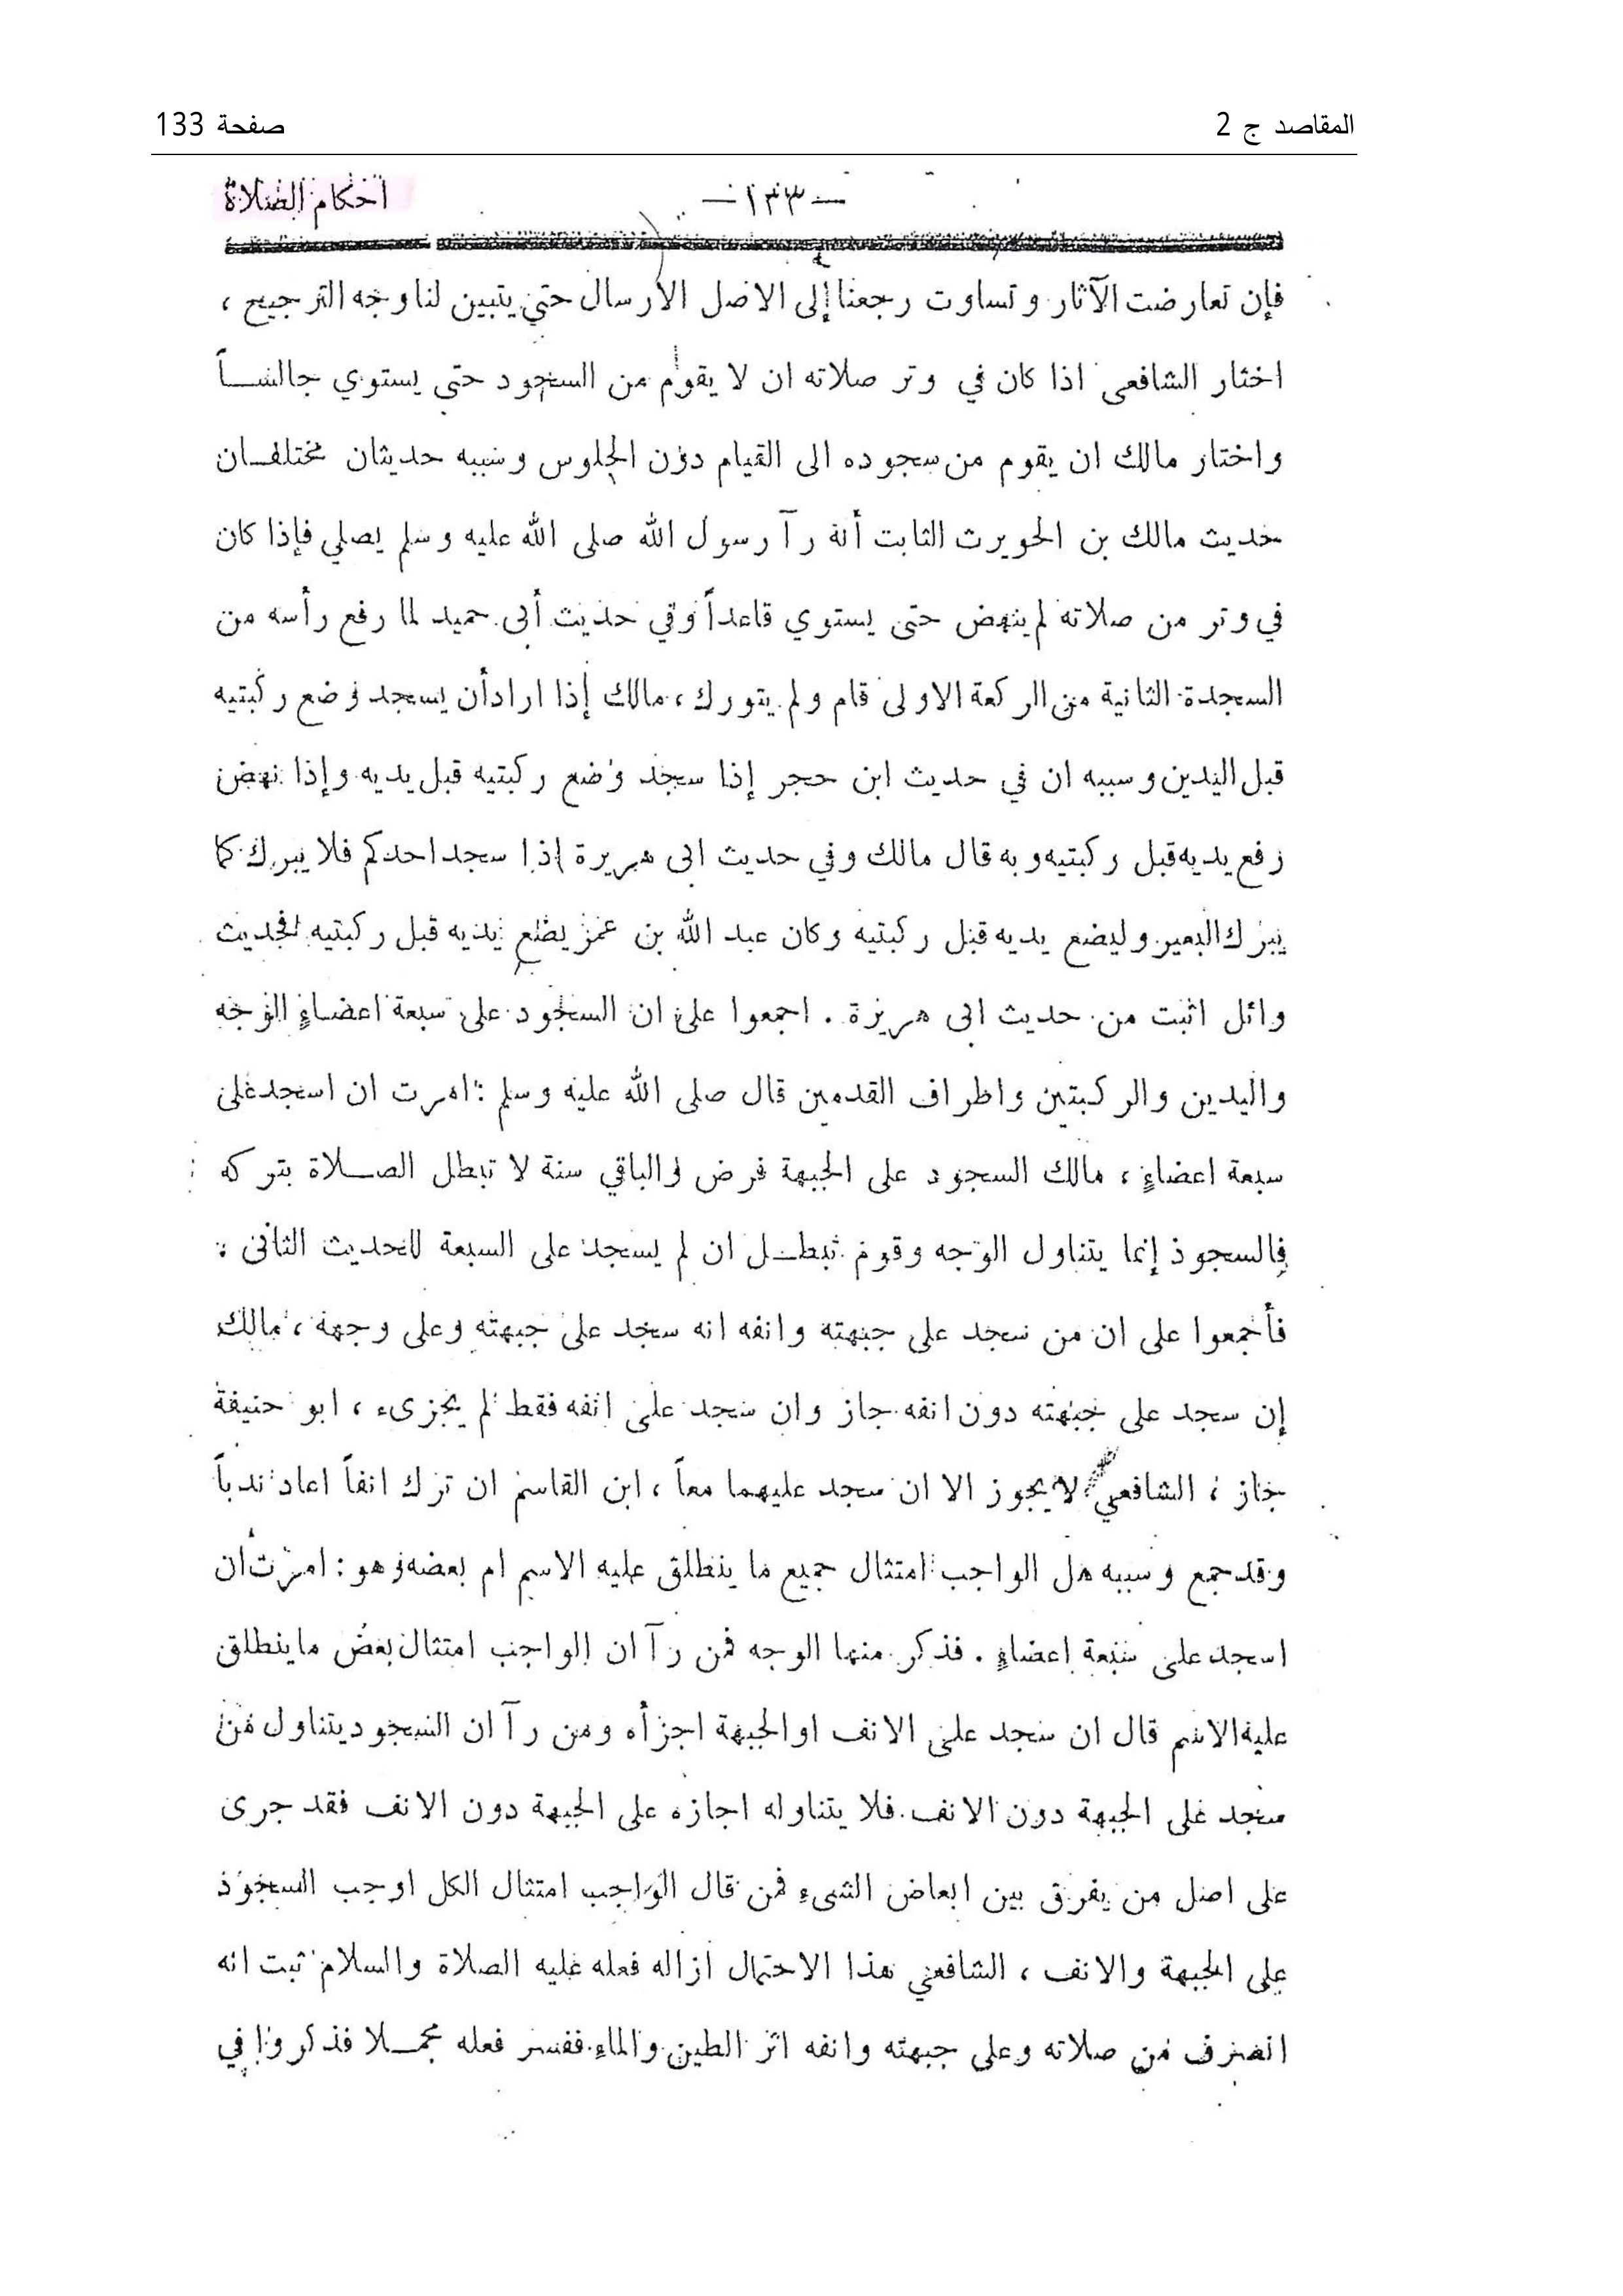 المقاصد ج 2
صفحة 133
-١٣٣-
احكام الصلاة
فإن تعارضت الآثار وتساوت رجعنا إلى الاصل الارسال حتى يتبين لنا وجه الترجيح ،
اختار الشافعى اذا كان في وتر صلاته ان لا يقوم من السجود حتى يستوي جالساً
واختار مالك ان يقوم من سجوده الى القيام دون الجلوس وسببه حديثان مختلفان
حديث مالك بن الحويرث الثابت أنه رآ رسول الله صلى الله عليه وسلم يصلي فإذا كان
في وتر من صلاته لم ينهض حتى يستوي قاعداً وفي حديث أبى حميد لما رفع رأسه من
السجدة الثانية من الركعة الاولى قام ولم يتورك ، مالك إذا اراد أن يسجد وضع ركبتيه
قبل اليدين وسببه ان في حديث ابن حجر إذا سجد وضع ركبتيه قبل يديه وإذا نهض
رفع يديه قبل ركبتيه وبه قال مالك وفي حديث ابى هريرة إذا سجد احدكم فلا يبرك كما
يبرك البعير وليضع يديه قبل ركبتيه وكان عبد الله بن عمر يضع يديه قبل ركبتيه فحديث
وائل اثبت من حديث ابى هريرة . اجمعوا على ان السجود على سبعة اعضاءٍ الوجه
واليدين والركبتين واطراف القدمين قال صلى الله عليه وسلم : امرت ان اسجد على
سبعة اعضاءٍ ، مالك السجود على الجبهة فرض والباقي سنة لا تبطل الصلاة بتركه
فالسجود إنما يتناول الوجه وقوم تبطل ان لم يسجد على السبعة للحديث الثانى :
فأجمعوا على ان من سجد على جبهته وانفه انه سجد على جبهته وعلى وجهه ، مالك
إن سجد على جبهته دون انفه جاز وان سجد على انفه فقط لم يجزىء ، ابو حنيفة
جاز ، الشافعي لا يجوز الا ان سجد عليهما معاً ، ابن القاسم ان ترك انفاً اعاد ندباً
وقد جمع وسببه هل الواجب امتثال جميع ما ينطلق عليه الاسم ام بعضه وهو : امرت ان
اسجد على سبعة اعضاءٍ . فذكر منها الوجه فمن رآ ان الواجب امتثال بعض ما ينطلق
عليه الاسم قال ان سجد على الانف او الجبهة اجزأه ومن رآ ان السجود يتناول من
سجد على الجبهة دون الانف فلا يتناوله اجازه على الجبهة دون الانف فقد جرى
على اصل من يفرق بين ابعاض الشىء فمن قال الواجب امتثال الكل اوجب السجود
على الجبهة والانف ، الشافعي هذا الاحتمال ازاله فعله عليه الصلاة والسلام ثبت انه
انصرف من صلاته وعلى جبهته وانفه اثر الطين والماء ففسر فعله مجملا فذكروا في